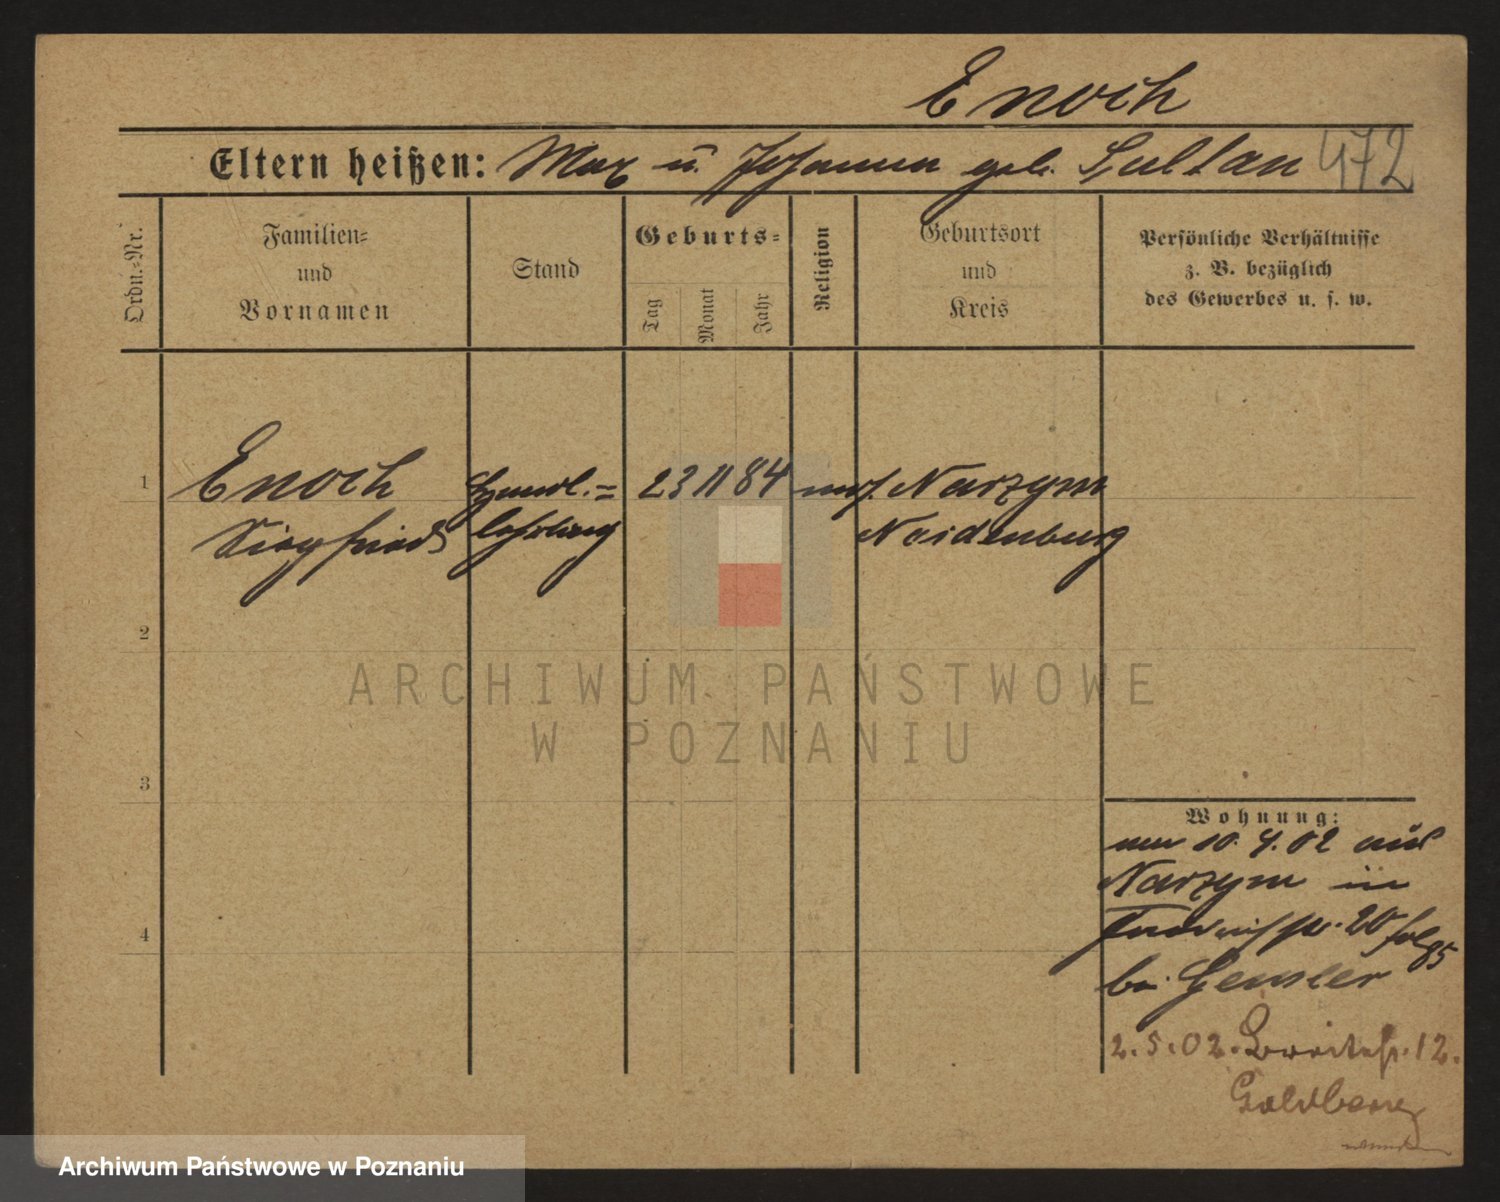 Enoch
Eltern heißen: Max u. Johanna geb. Sultan 472
Ordn.-Nr.
Familien-
und
Vornamen
Stand
Geburts-
Tag
Monat
Jahr
Religion
Geburtsort
und
Kreis
Persönliche Verhältnisse
z. B. bezüglich
des Gewerbes u. s. w.
1 Enoch Handl.= 23 11 84 mos. Narzym
Siegfried lehrling Neidenburg
2
3
4
Wohnung:
10.4.02 aus
Narzym in
20
bei
2.5.02. Breitestr. 12.
Goldberg
ARCHIWUM PAŃSTWOWE
W POZNANIU
Archiwum Państwowe w Poznaniu